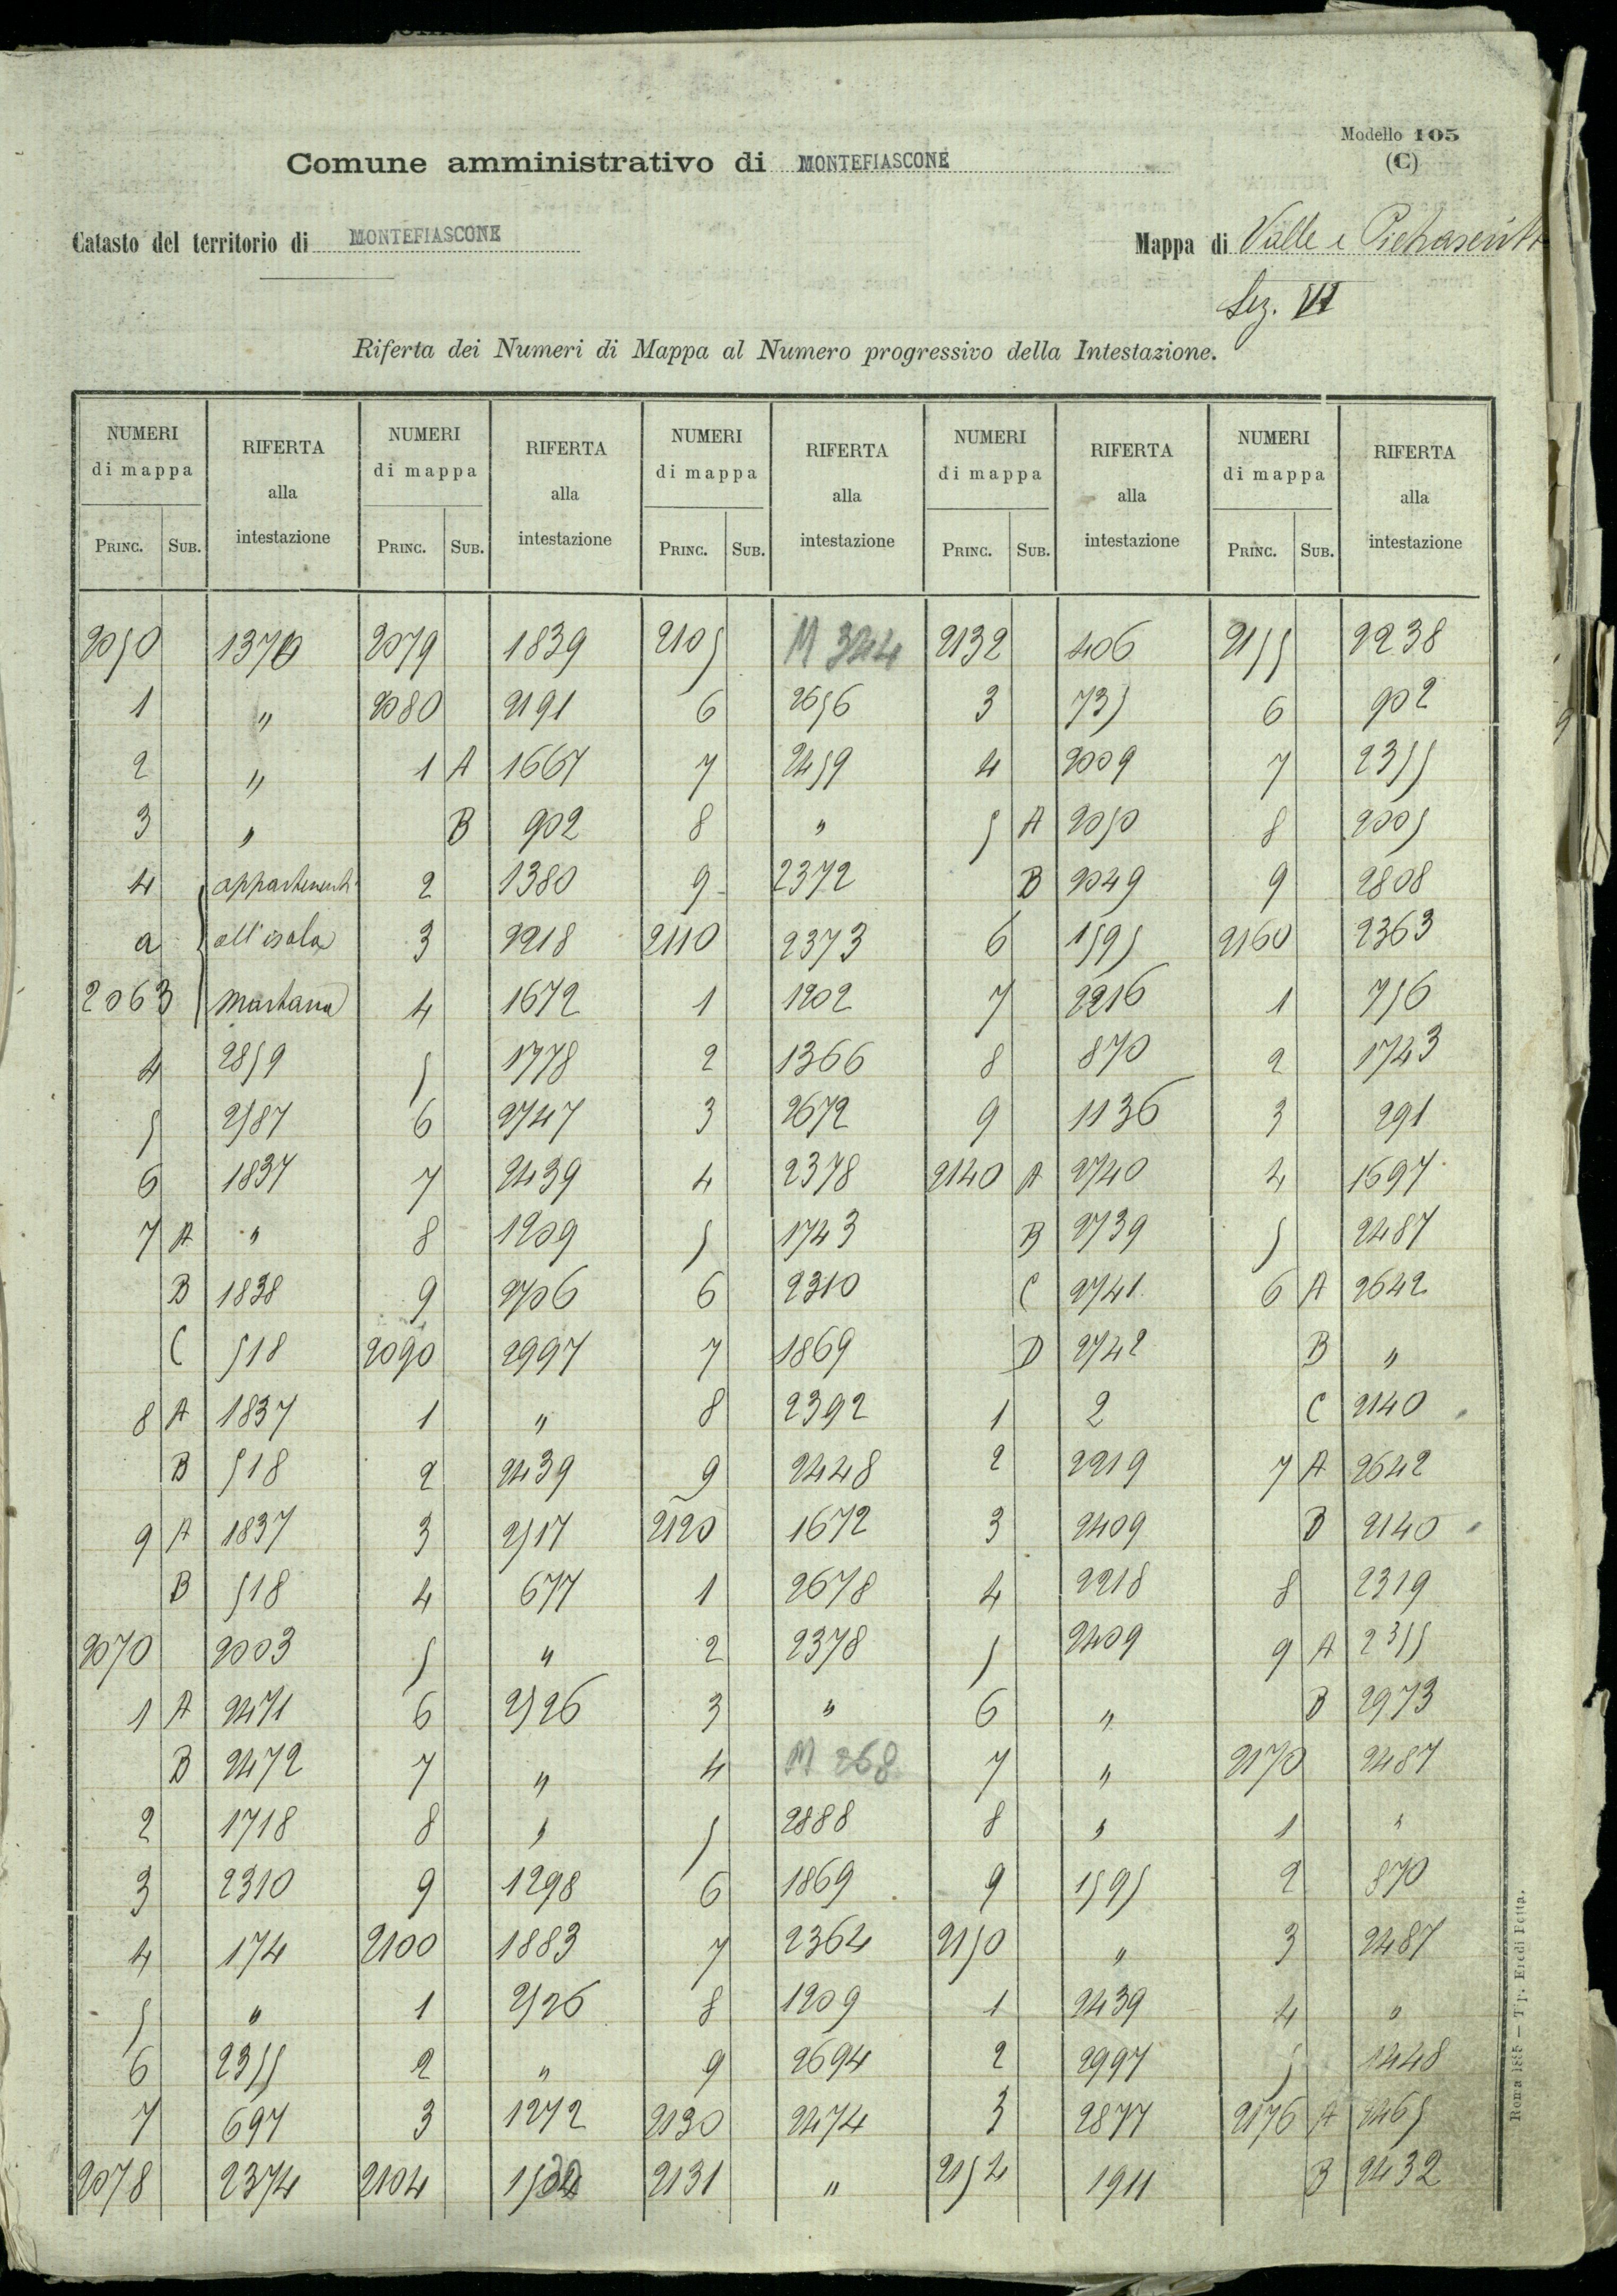 Modello 105
(C)
Comune amministrativo di MONTEFIASCONE
Catasto del territorio di MONTEFIASCONE
Mappa di Valle e
Sez. VI
Riferta dei Numeri di Mappa al Numero progressivo della Intestazione.
NUMERI di mappa RIFERTA alla intestazione NUMERI di mappa RIFERTA alla intestazione NUMERI di mappa RIFERTA alla intestazione NUMERI di mappa RIFERTA alla intestazione NUMERI di mappa RIFERTA alla intestazione
PRINC. SUB. PRINC. SUB. PRINC. SUB. PRINC. SUB. PRINC. SUB.
2050 1370 2079 1839 2105 M 344 2132 406 2155 2238
1 " 2080 2191 6 2656 3 735 6 902
2 " 1 A 1667 7 2459 4 2009 7 2355
3 " B 902 8 " 5 A 2050 8 2005
4 appartenenti 2 1380 9 2372 B 2049 9 2808
a all'isola 3 2218 2110 2373 6 1595 2160 2363
2063 Martana 4 1672 1 1202 7 2216 1 756
4 2859 5 1778 2 1366 8 870 2 1743
5 2587 6 2747 3 2672 9 1136 3 291
6 1837 7 2439 4 2378 2140 A 2740 4 1697
7 A " 8 1209 5 1743 B 2739 5 2487
B 1838 9 2706 6 2310 C 2741 6 A 2642
C 518 2090 2997 7 1869 D 2742 B "
8 A 1837 1 " 8 2392 1 2 C 2140
B 518 2 2439 9 2448 2 2219 7 A 2642
9 A 1837 3 2517 2120 1672 3 2409 B 2140
B 518 4 677 1 2678 4 2218 8 2319
2070 2003 5 " 2 2378 5 2409 9 A 2355
1 A 2471 6 2526 3 " 6 " B 2973
B 2472 7 " 4 M 268 7 " 2170 2487
2 1718 8 " 5 2888 8 " 1 "
3 2310 9 1298 6 1869 9 1595 2 870
4 174 2100 1883 7 2364 2150 " 3 2487
5 " 1 2526 8 1209 1 2439 4 "
6 2355 2 " 9 2694 2 2997 5 1448
7 697 3 1272 2130 2474 3 2877 2176 A 2465
2078 2374 2104 2131 " 2154 1911 B 2432
Roma 1885 — Tip. Eredi Botta.